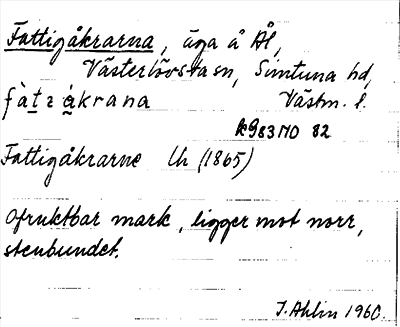 Fattigåkrarna, äga å Ål,
Västerlövsta sn, Simtuna hd,
fàtᴣákrana Västm. l.
kg83 NO 82
Fattigåkrarne Uh (1865)
Ofruktbar mark, ligger mot norr,
stenbundet.
J. Ahlin 1960.